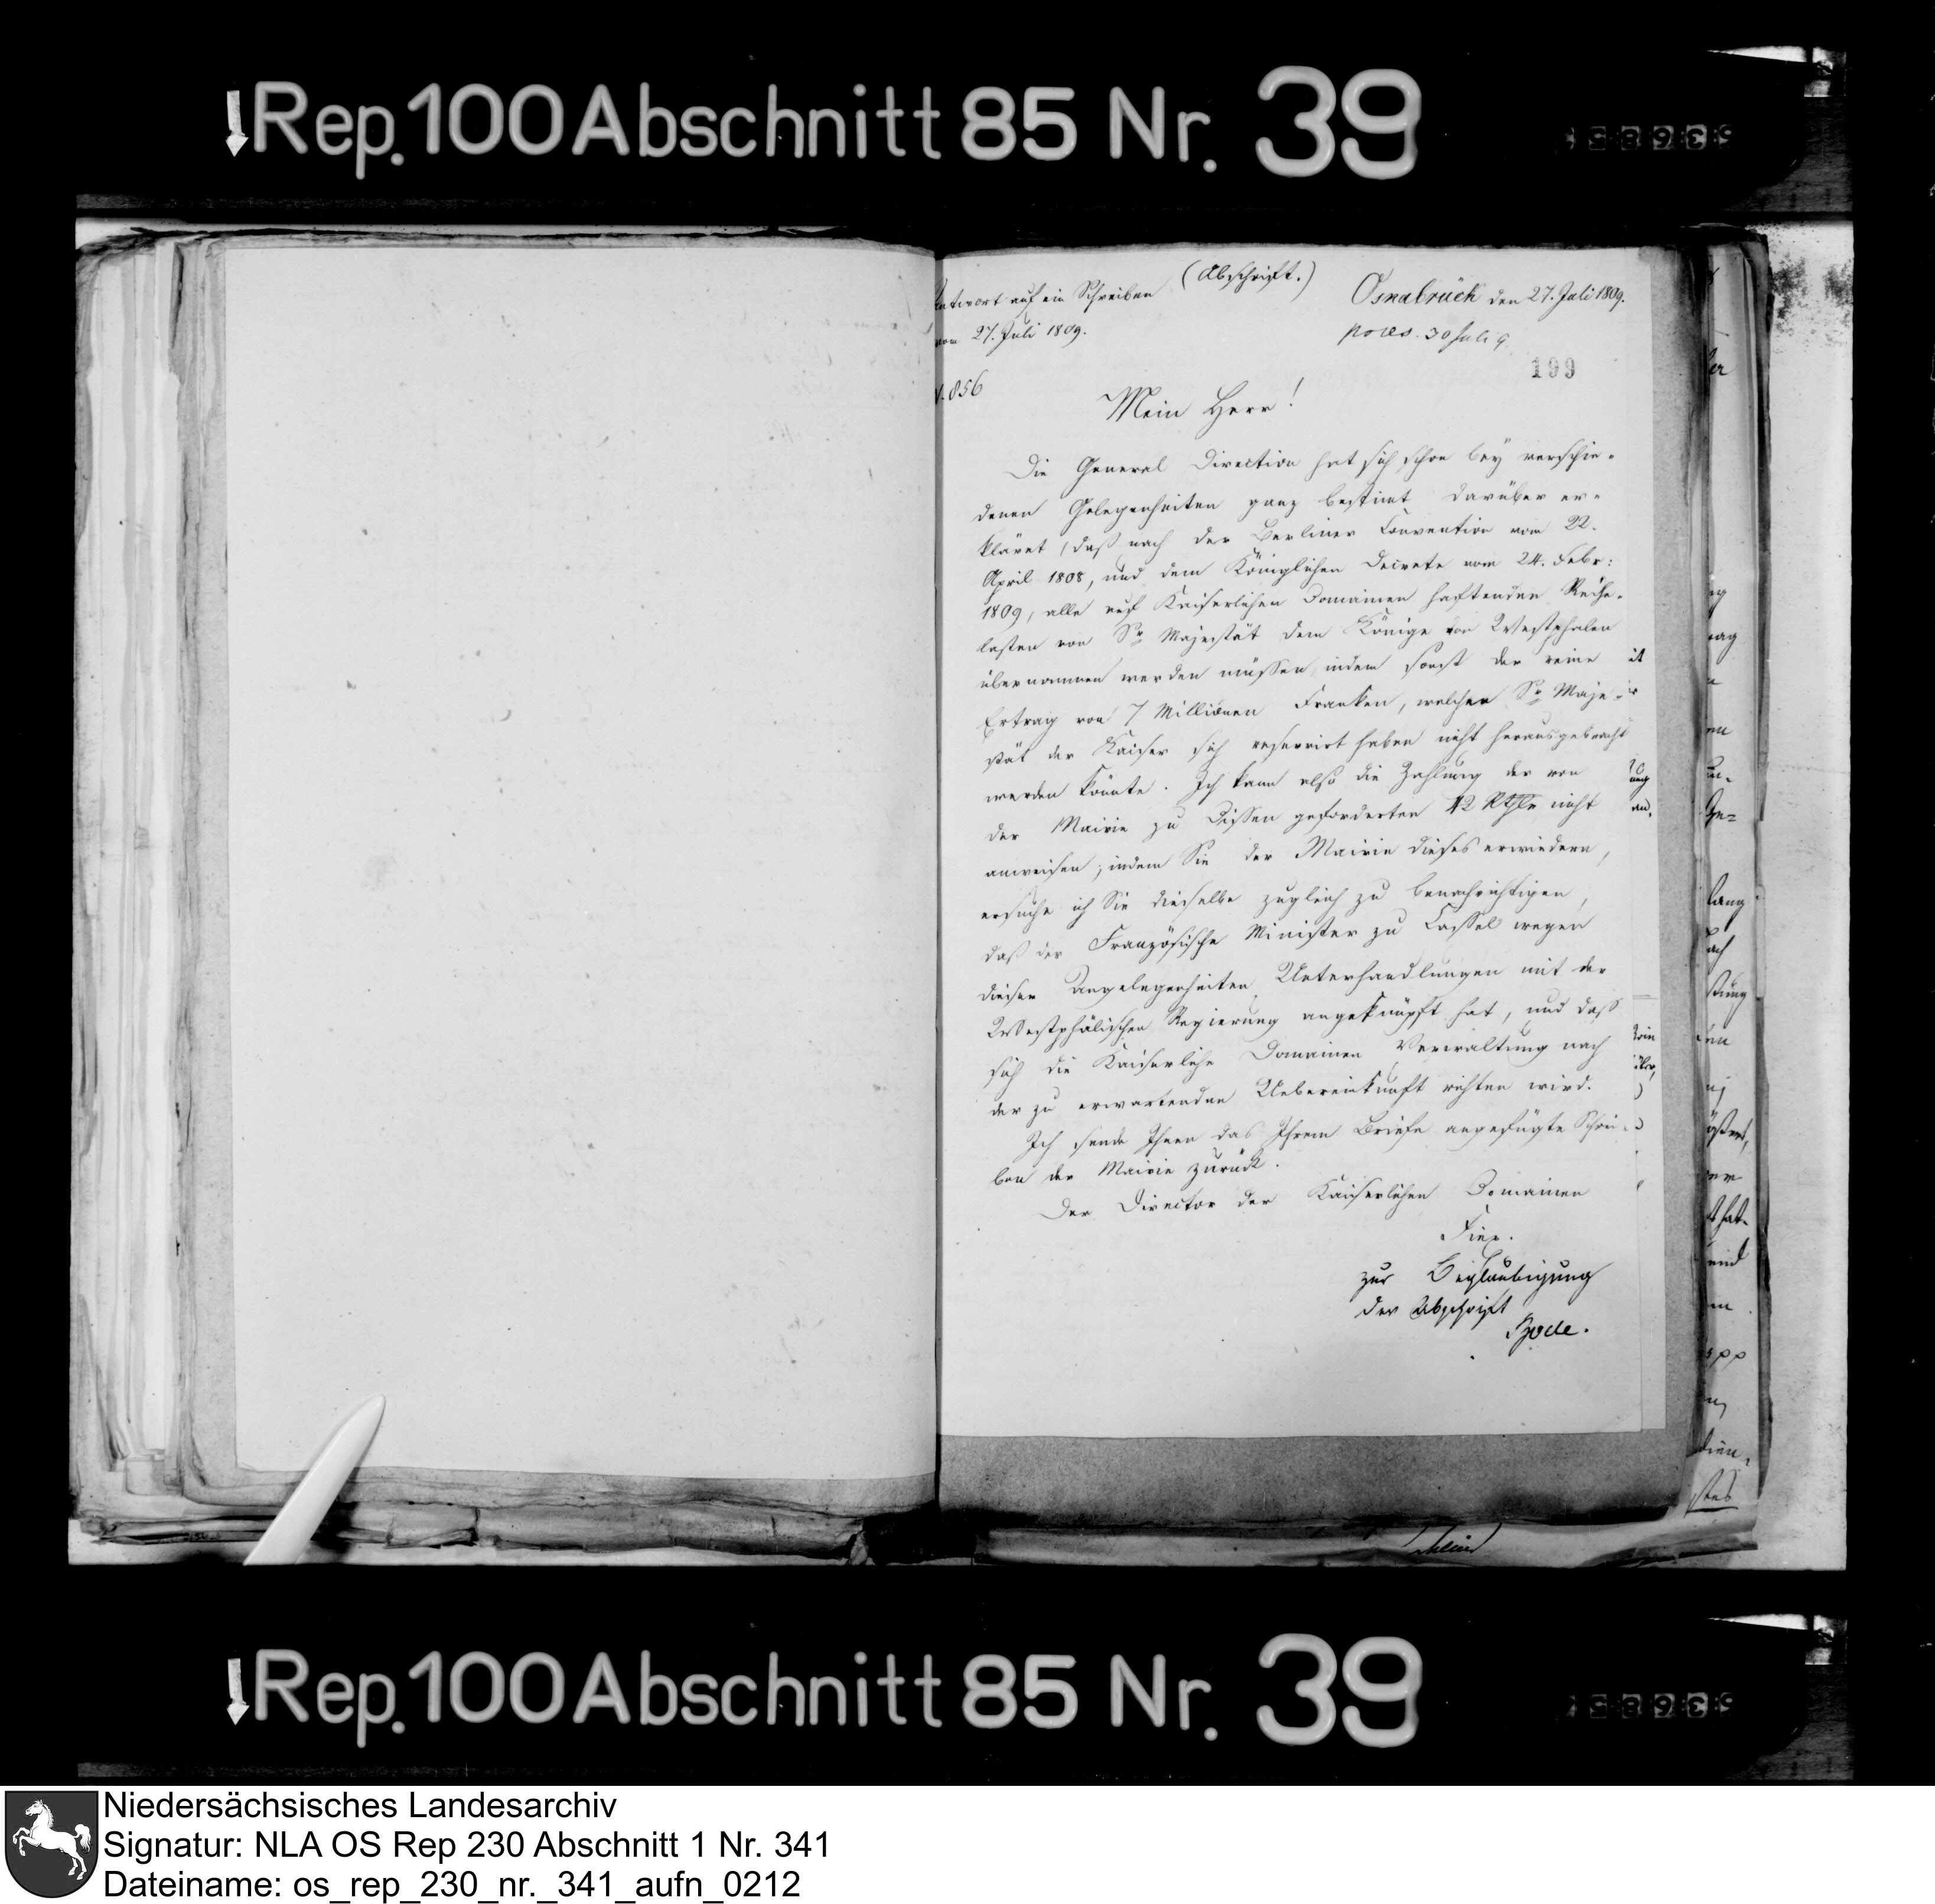 Rep. 100 Abschnitt 85 Nr. 39
(Abschrift.)
Antwort auf ein Schreiben
vom 27. Juli 1809.
Osnabrück den 27. Juli 1809.
praes. 30 Juli 9
199
N. 856
Mein Herr!
Die General Direction hat sich schon bey verschie-
denen Gelegenheiten ganz bestimt darüber er-
kläret, daß nach der Berliner Convention vom 22.
April 1808, und dem Königlichen Decrete vom 24. Febr:
1809, alle auf Kaiserlichen Domainen haftenden Reihe-
lasten von Sr Majestät dem Könige von Westphalen
übernommen werden müssen, indem sonst der reine
Ertrag von 7 Millionen Franken, welchen Sr Maje-
stät der Kaiser sich reservirt haben nicht herausgebracht
werden könnte. Ich kann also die Zahlung der von
der Mairie zu Dissen geforderten 12 Rthlr nicht
anweisen; indem Sie der Mairie dieses erwiedern,
ersuche ich Sie dieselbe zugleich zu benachrichtigen,
daß der Französische Minister zu Cassel wegen
dieser Angelegenheiten Unterhandlungen mit der
Westphälischen Regierung angeknüpft hat, und daß
sich die Kaiserliche Domainen Verwaltung nach
der zu erwartenden Uebereinkunft richten wird.
Ich sende Ihnen das Ihrem Briefe angefügte Schrei-
ben der Mairie zurück.
Der Director der Kaiserlichen Domainen
zur Beglaubigung
der Abschrift
Bode.
Rep. 100 Abschnitt 85 Nr. 39
Niedersächsisches Landesarchiv
Signatur: NLA OS Rep 230 Abschnitt 1 Nr. 341
Dateiname: os_rep_230_nr._341_aufn_0212